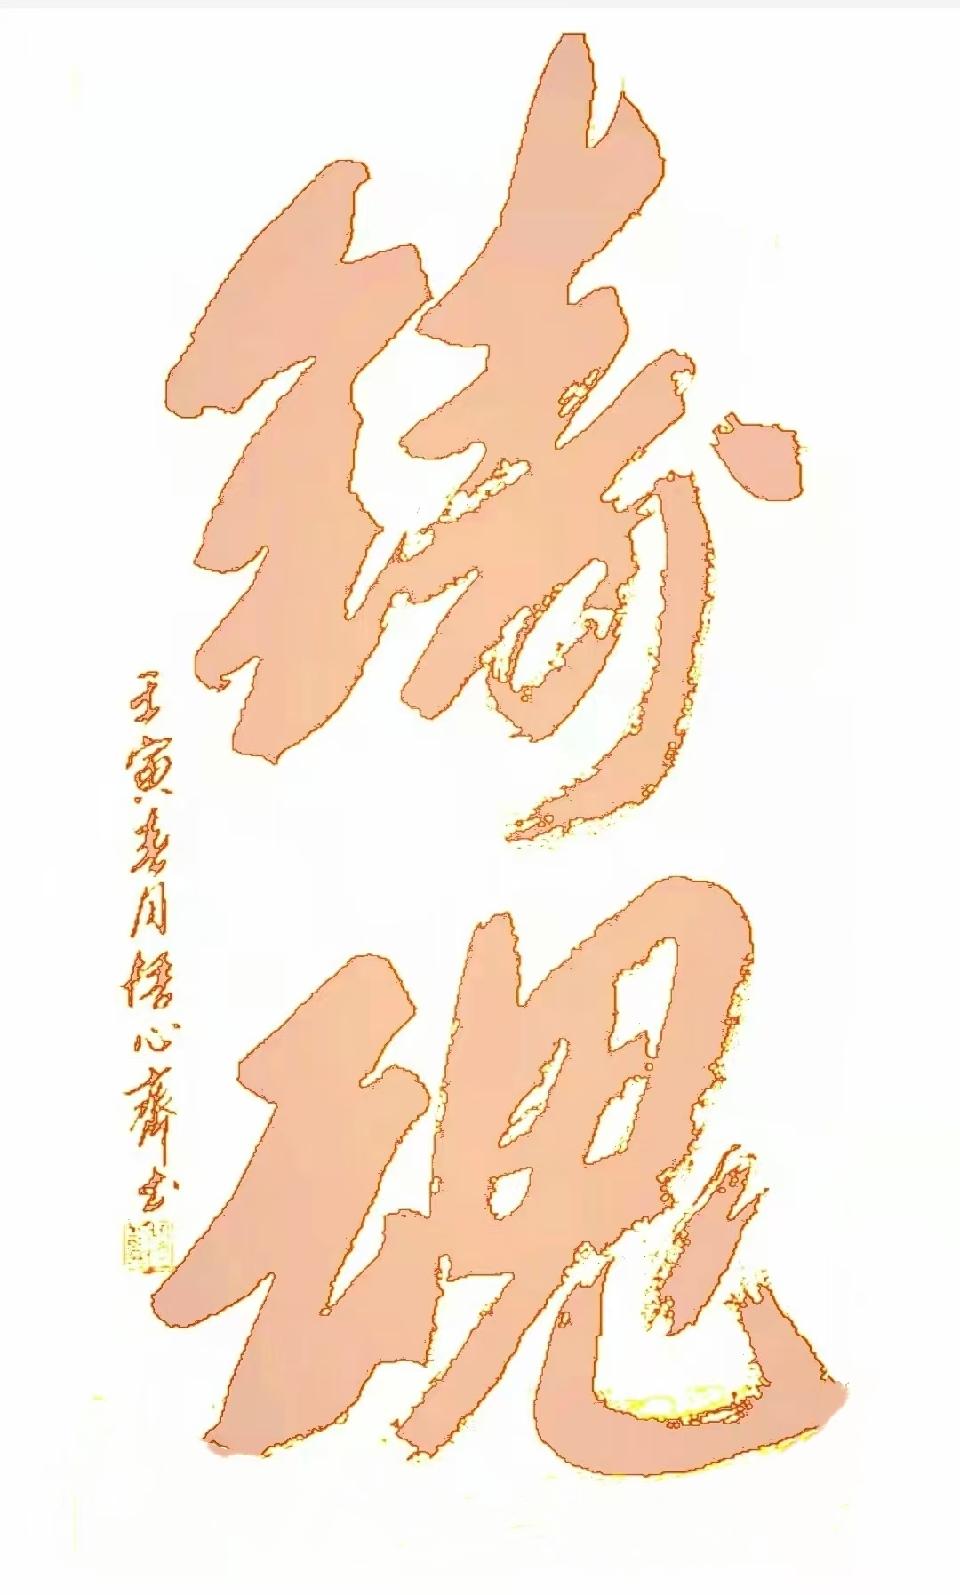 铸魂
壬寅春月悟心齋书